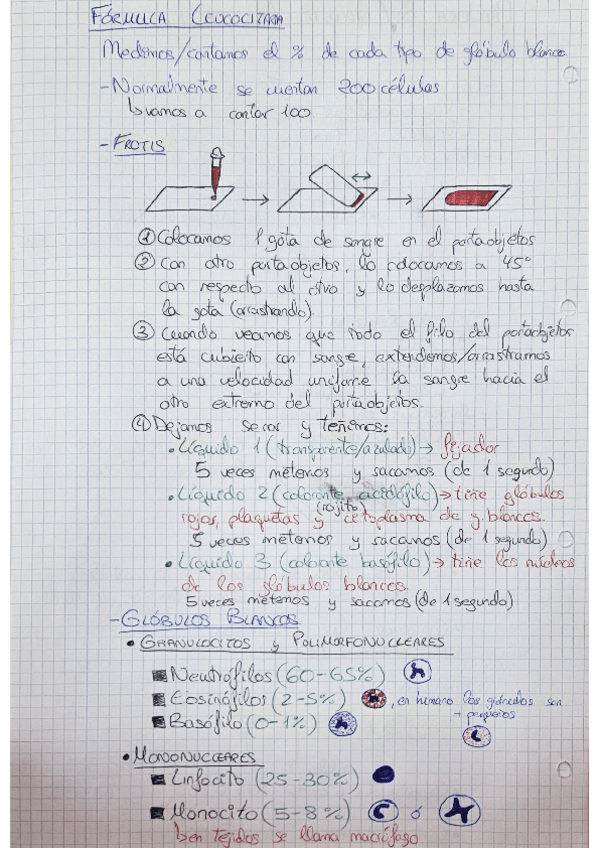 FÓRMULA LEUCOCITARIA
Medimos/contamos el % de cada tipo de glóbulo blanco.
- Normalmente se cuentan 200 células
↳ vamos a contar 100
- FROTIS
① Colocamos 1 gota de sangre en el portaobjetos
② Con otro portaobjetos, lo colocamos a 45°
con respecto al otro y lo desplazamos hasta
la gota (arrastrando).
③ Cuando veamos que todo el filo del portaobjetos
está cubierto con sangre, extendemos/arrastramos
a una velocidad uniforme la sangre hacia el
otro extremo del portaobjetos.
④ Dejamos secar y teñimos:
• Líquido 1 (transparente/azulado) → fijador
5 veces metemos y sacamos (de 1 segundo)
• Líquido 2 (colorante acidófilo) → tiñe glóbulos
(rojito)
rojos, plaquetas y citoplasma de g. blancos.
5 veces metemos y sacamos (de 1 segundo)
• Líquido 3 (colorante basófilo) → tiñe los núcleos
de los glóbulos blancos.
5 veces metemos y sacamos (de 1 segundo)
- GLÓBULOS BLANCOS
• GRANULOCITOS y POLIMORFONUCLEARES
Neutrófilos (60-65%)
Eosinófilos (2-5%) , en humano los gránulos son
+ pequeños
Basófilo (0-1%)
• MONONUCLEARES
Linfocito (25-30%)
Monocito (5-8%) ó
↳ en tejidos se llama macrófago.